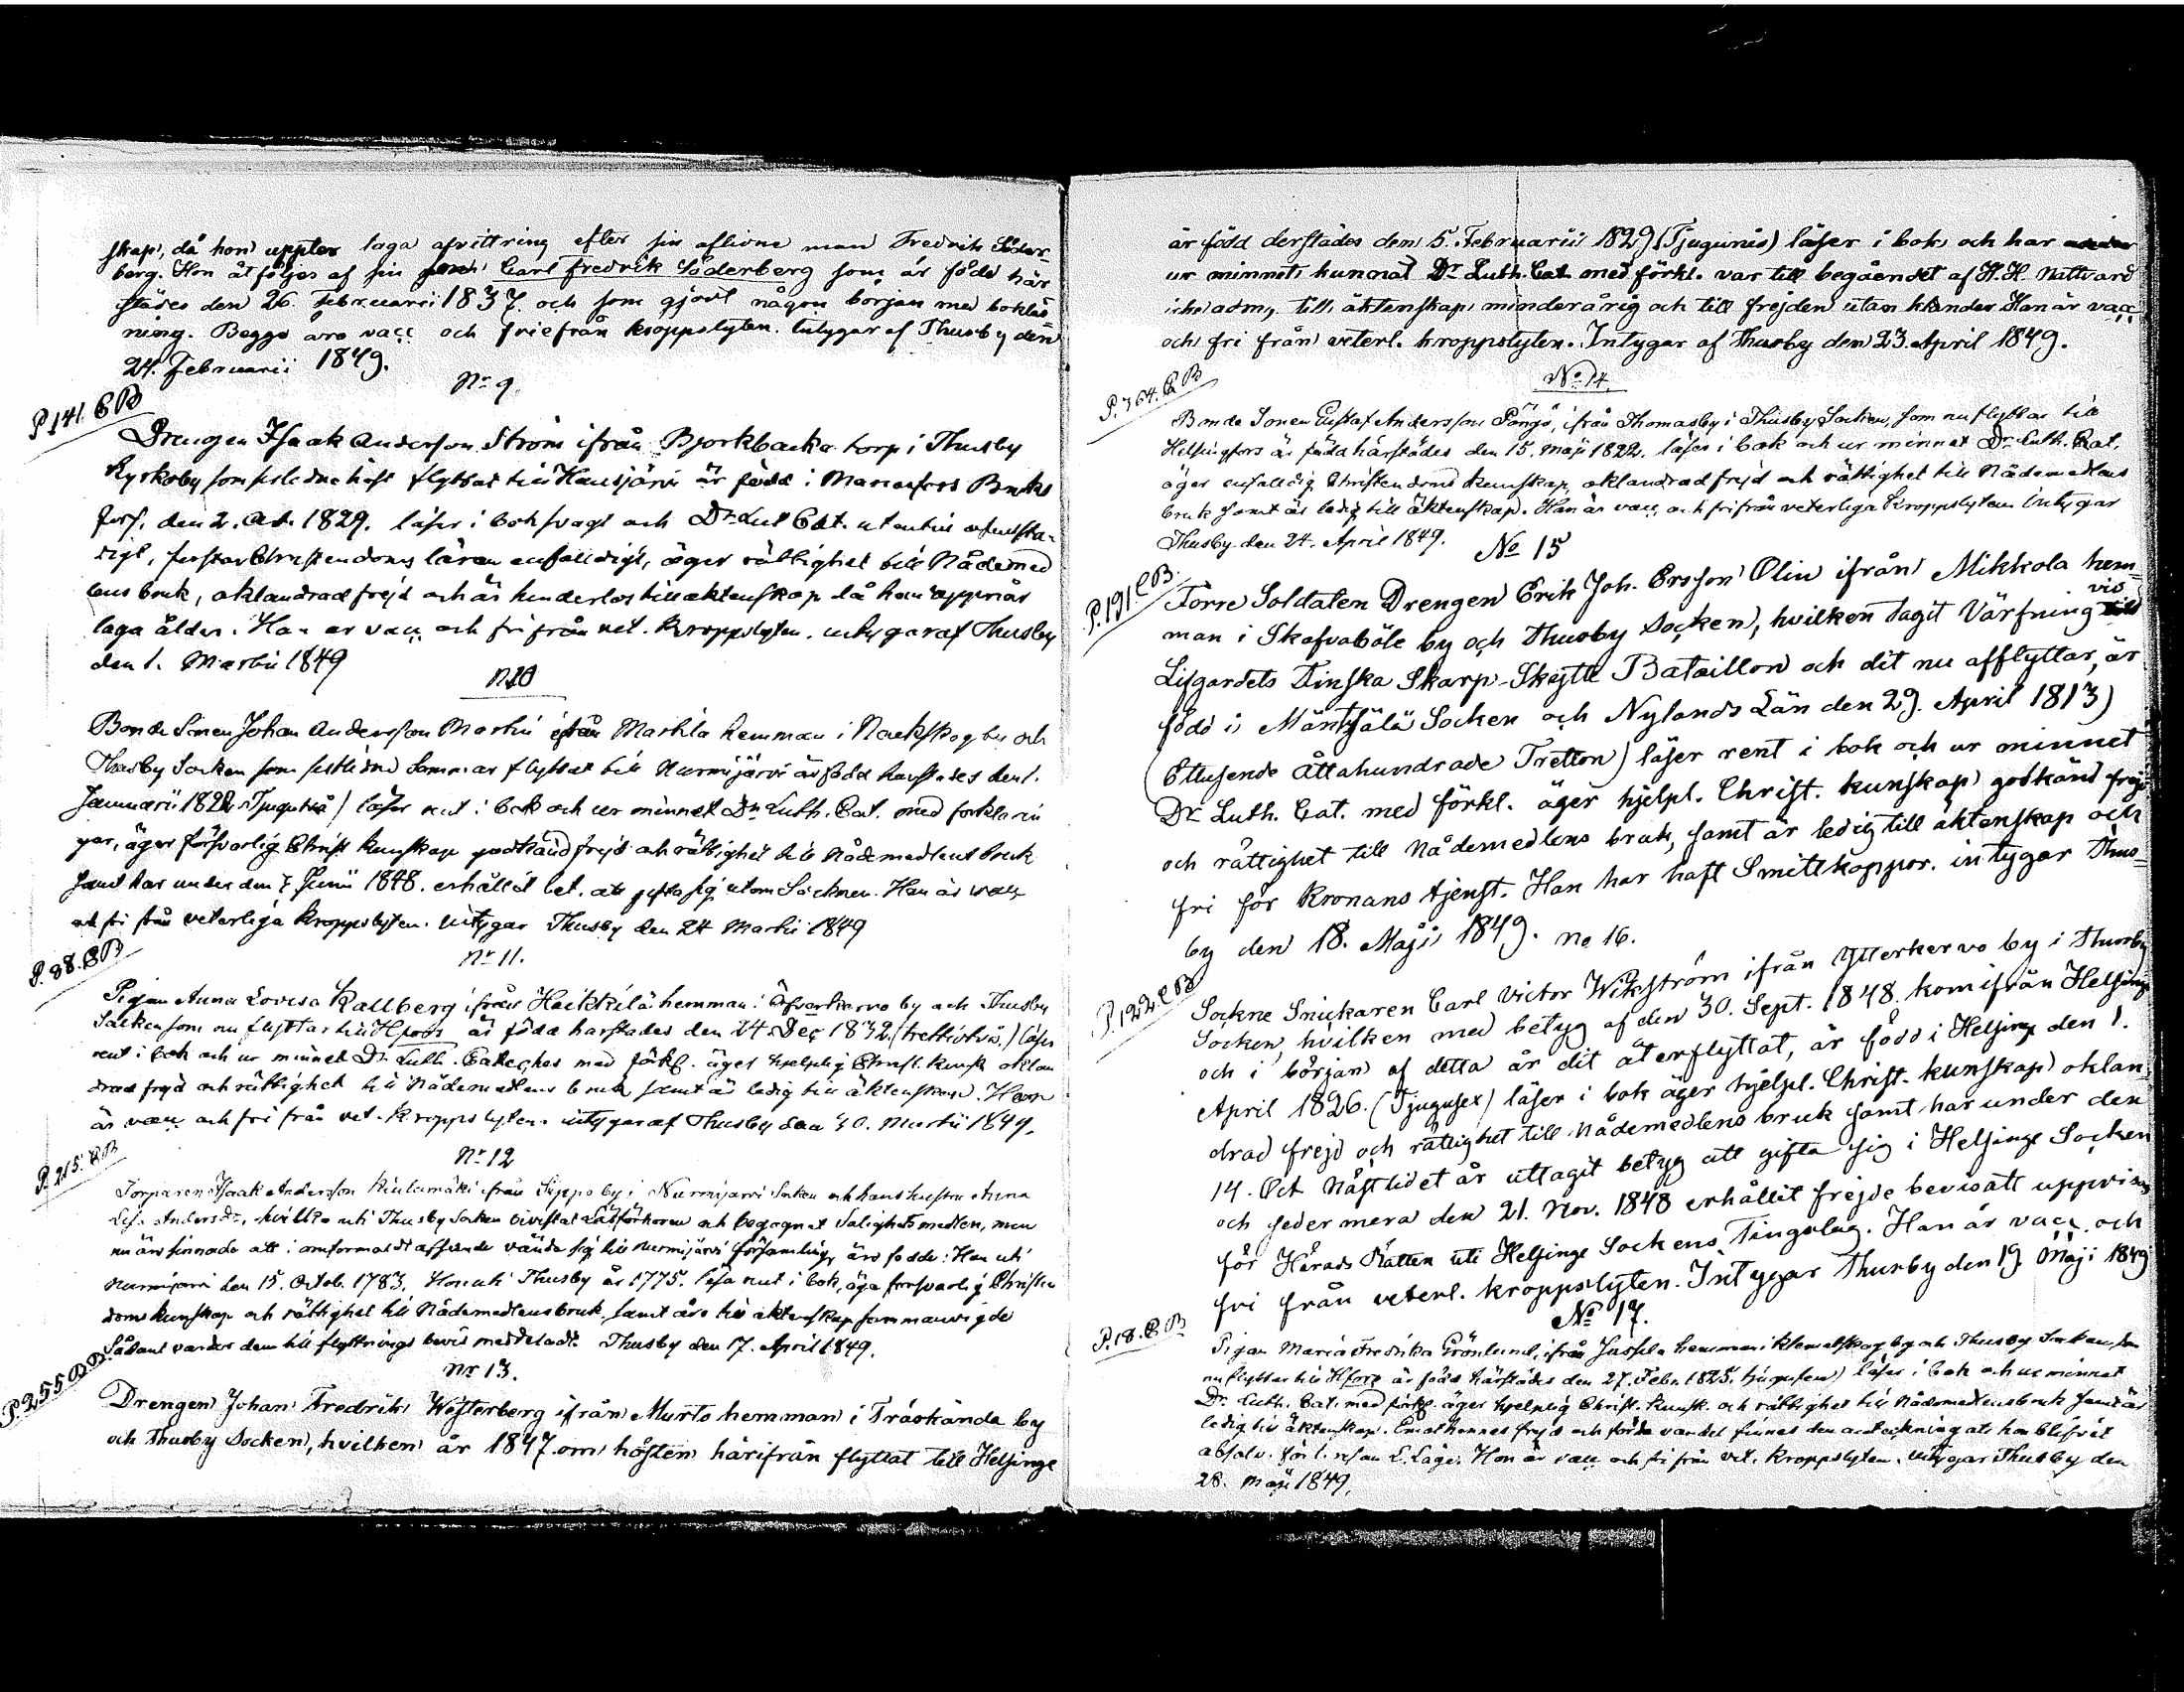 skap, då hon uppter laga afvittring efter sin aflidne man Fredrik Söder-
berg. Hon åtföljes af sin son Carl Fredrik Söderberg som är född här
städes den 26. Februarii 1837. och som gjort någon början med bokläs
ning. Begge äro vacc och frie från kroppslyten. intygar af Thusby den
24. Februarii 1849.
No 9.
P. 141. C B
Drengen Isaak Andersson Ström ifrån Björkbacka torp i Thusby
Kyrkoby som sistledne höst flyttat till Hausjärvi är född i Mariefors Bruks
förs. den 2. Oct. 1829. läser i bok svagt och Dr Lut Cat. utantill ofullstän-
digt, förstår Christendoms läran enfaldigt, äger rättighet till Nådemed
lens bruk, oklandrad frejd och är hinderlös till äktenskap då han uppnår
laga ålder. Han är vacc. och fri från vet. kroppslyten. intygar af Thusby
den 1. Martii 1849
N 10
Bonde Sonen Johan Andersson Martin ifrån Markla hemman i Nackskog by och
Thusby Socken som sistlidne Sommar flyttat till Nurmijärvi är född härstädes den 1.
Januarii 1822 (Tjugutvå) läser rent i bok och ur minnet Dr Luth. Cat. med förklarin
gar, äger försvarlig Christ kunskap godkänd frejd och rättighet till Nådemedlens bruk
samt har under den 7 Junii 1848. erhållit bet. att gifta sig utom Socknen. Han är vacc
och fri från veterliga kroppslyten. intygar Thusby den 24 Martii 1849
P. 88. C B
No 11.
Pigan Anna Lovisa Kallberg ifrån Heikkilä hemman i Öfverkervo by och Thusby
Socken som nu flyttar till Hfors är född härstädes den 24 Dec 1832 (trettiotvå.) läser
rent i bok och ur minnet Dr Luth. Cateches med förkl. äger hjelplig Christ. kunsk oklan
drad frejd och rättighet till Nådemedlens bruk samt är ledig till äktenskap. Hon
är vacc. och fri från vet. kroppslyten. intygar af Thusby den 30. Martii 1849.
P. 215. C B
No 12
Torparen Isaak Andersson från Seppä by i Nurmijärvi Socken och hans hustru Anna
Lisa Andersdr, hvilka uti Thusby Socken bivistat Läsförhören och begagnat Salighetsmedlen, men
nu äro sinnade att i omförmäldt afseende vända sig till Nurmijärvi församling, äro födde: Han uti
Nurmijärvi den 15. Octob. 1783. Hon uti Thusby år 1775. läsa rent i bok, äga försvarlig Christen
doms kunskap och rättighet till Nådemedlens bruk, samt äro till äktenskap sammanvigde
Sådant varder dem till flyttnings bevis meddeladt. Thusby den 17. April 1849.
P. 255 C B
No 13.
Drengen Johan Fredrik Westerberg ifrån Murto hemman i Träskända by
och Thusby Socken, hvilken år 1847 om hösten härifrån flyttat till Helsinge
är född derstädes den 5. Februarii 1829. (Tjugunio) läser i bok och har
ur minnet kunnat Dr Luth. Cat. med förkl. var till begåendet af H. H. Nattvard
icke adm. till äktenskap minderårig och till frejden utan klander Han är vacc
och fri från veterl. kroppslyten. Intygar af Thusby den 23. April 1849.
P. 764. C B
No 14.
Bonde Sonen Gustaf Andersson Pångs, ifrån Thomasby i Thusby Socken, som nu flyttar till
Helsingfors är född härstädes den 15. Maji 1822. läser i bok och ur minnet Dr Luth. Cat.
äger enfaldig Christendoms kunskap, oklandrad frejd och rättighet till Nådemedlens
bruk samt är ledig till äktenskap. Han är vacc. och fri från veterliga kroppslyten intygar
Thusby den 24. April 1849.
No 15
P. 191. C B.
Förre Soldaten Drengen Erik Joh. Ersson Olin ifrån Mikkola hem-
man i Skafvaböle by och Thusby Socken, hvilken tagit Värfning vid
Lifgardets Finska Skarp-Skytte Bataillon och dit nu afflyttar, är
född i Mäntsälä Socken och Nylands Län den 29. April 1813)
(Ettusende Åttahundrade Tretton) läser rent i bok och ur minnet
Dr Luth. Cat. med förkl. äger hjelpl. Christ. kunskap godkänd frejd
och rättighet till Nådemedlens bruk, samt är ledig till äktenskap och
fri för Kronans tjenst. Han har haft Smittkoppor. intygar Thus-
by den 18. Maji 1849.
No 16.
P. 122 C B
Sockne Snickaren Carl Victor Wikström ifrån Ytterkervo by i Thusby
Socken, hvilken med betyg af den 30. Sept. 1848. kom ifrån Helsinge
och i början af detta år dit återflyttat, är född i Helsinge den 1.
April 1826. (Tjugusex) läser i bok äger hjelpl. Christ. kunskap oklan-
drad frejd och rättighet till Nådemedlens bruk samt har under den
14. Oct nästlidet år uttagit betyg att gifta sig i Helsinge Socken
och sedermera den 21. Nov. 1848 erhållit frejde bevis att uppvisas
för Härads Rätten uti Helsinge Sockens Tingslag. Han är vacc. och
fri från veterl. kroppslyten. Intygar Thusby den 19 Maji 1849
No 17.
P. 18. C B
Pigan Maria Fredrika Grönlund, ifrån Jussila hemman i Klemetskog by och Thusby Socken, som
nu flyttar till Hfors är född härstädes den 27. Febr. 1825. (tjugufem) läser i bok och ur minnet
Dr. Luth. Cat. med förkl. äger hjelplig Christ. kunsk. och rättighet till Nådemedlens bruk samt är
ledig till äktenskap. Emot hennes frejd och förda vandel finnes den anteckning att hon blifvit
absolv. för 1. resan L. Läge. Hon är vacc. och fri från vet. kroppslyten. intygar Thusby den
28. Maji 1849.